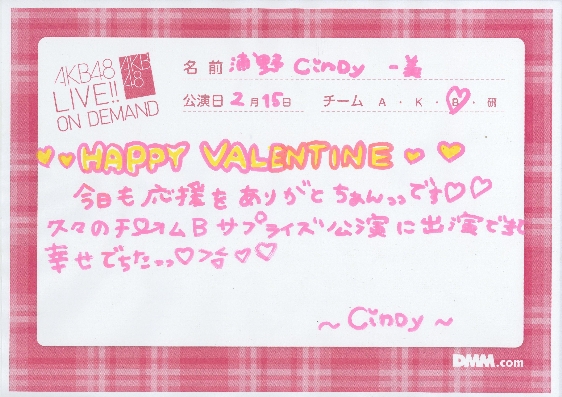 AKB48
LIVE!!
ON DEMAND
AKB
48
名前 浦野 Cindy 一美
公演日 2月15日 チーム A・K・B・研
HAPPY VALENTINE
今日も応援をありがとちぁんっっです♡♡
久々のチームBサプライズ公演に出演でき
幸せでちたっっ♡
~Cindy~
DMM.com